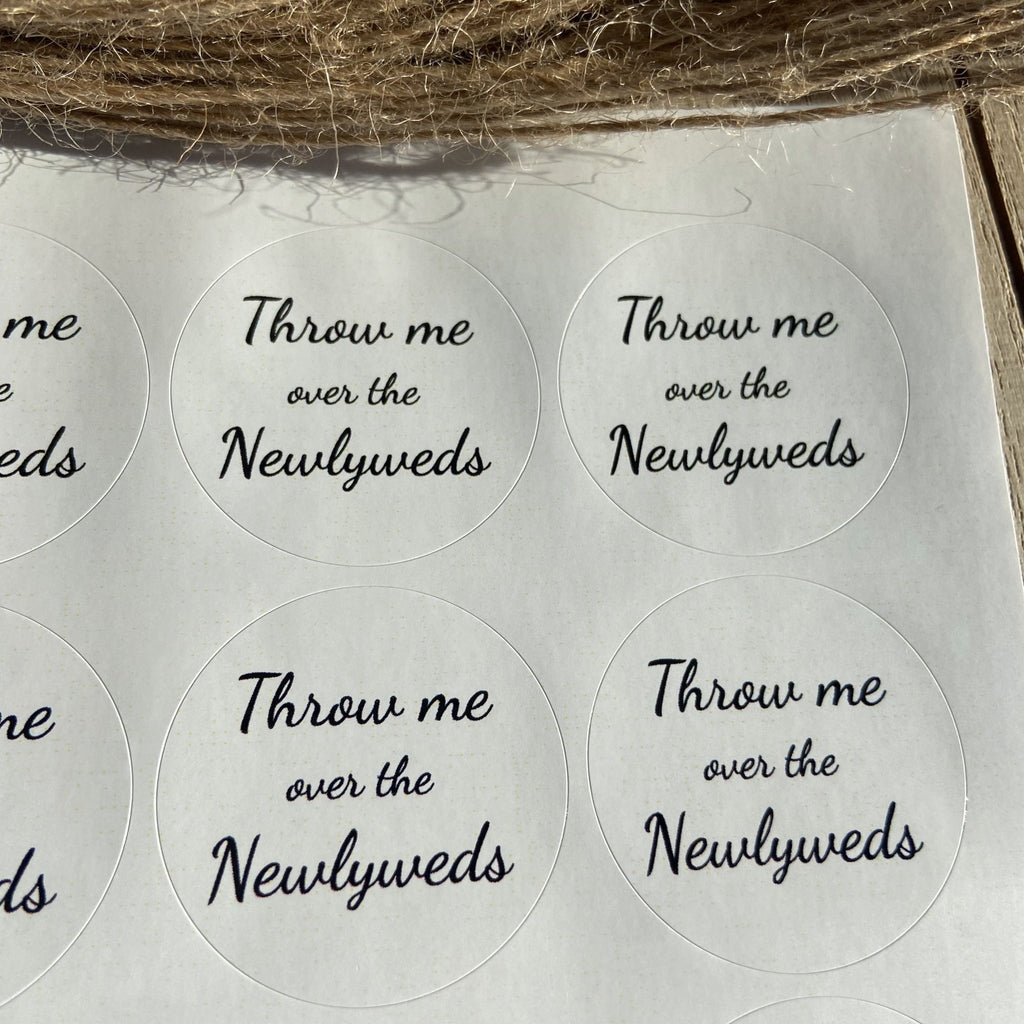 me
Throw me
Throw me
over the
over the
Newlyweds
Newlyweds
Throw me
Throw me
over the
over the
Newlyweds
Newlyweds